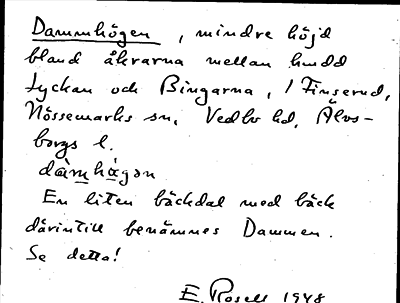 Dammhögen, mindre höjd
bland åkrarna mellan hudd
Lyckan och Bingarna, / Finserud,
Nössemarks sn. Vedbo hd. Älvs-
borgs l.
dàmhǻgən
En liten bäckdal med bäck
därintill benämnes Dammen.
Se detta!
E. Rosell 1948